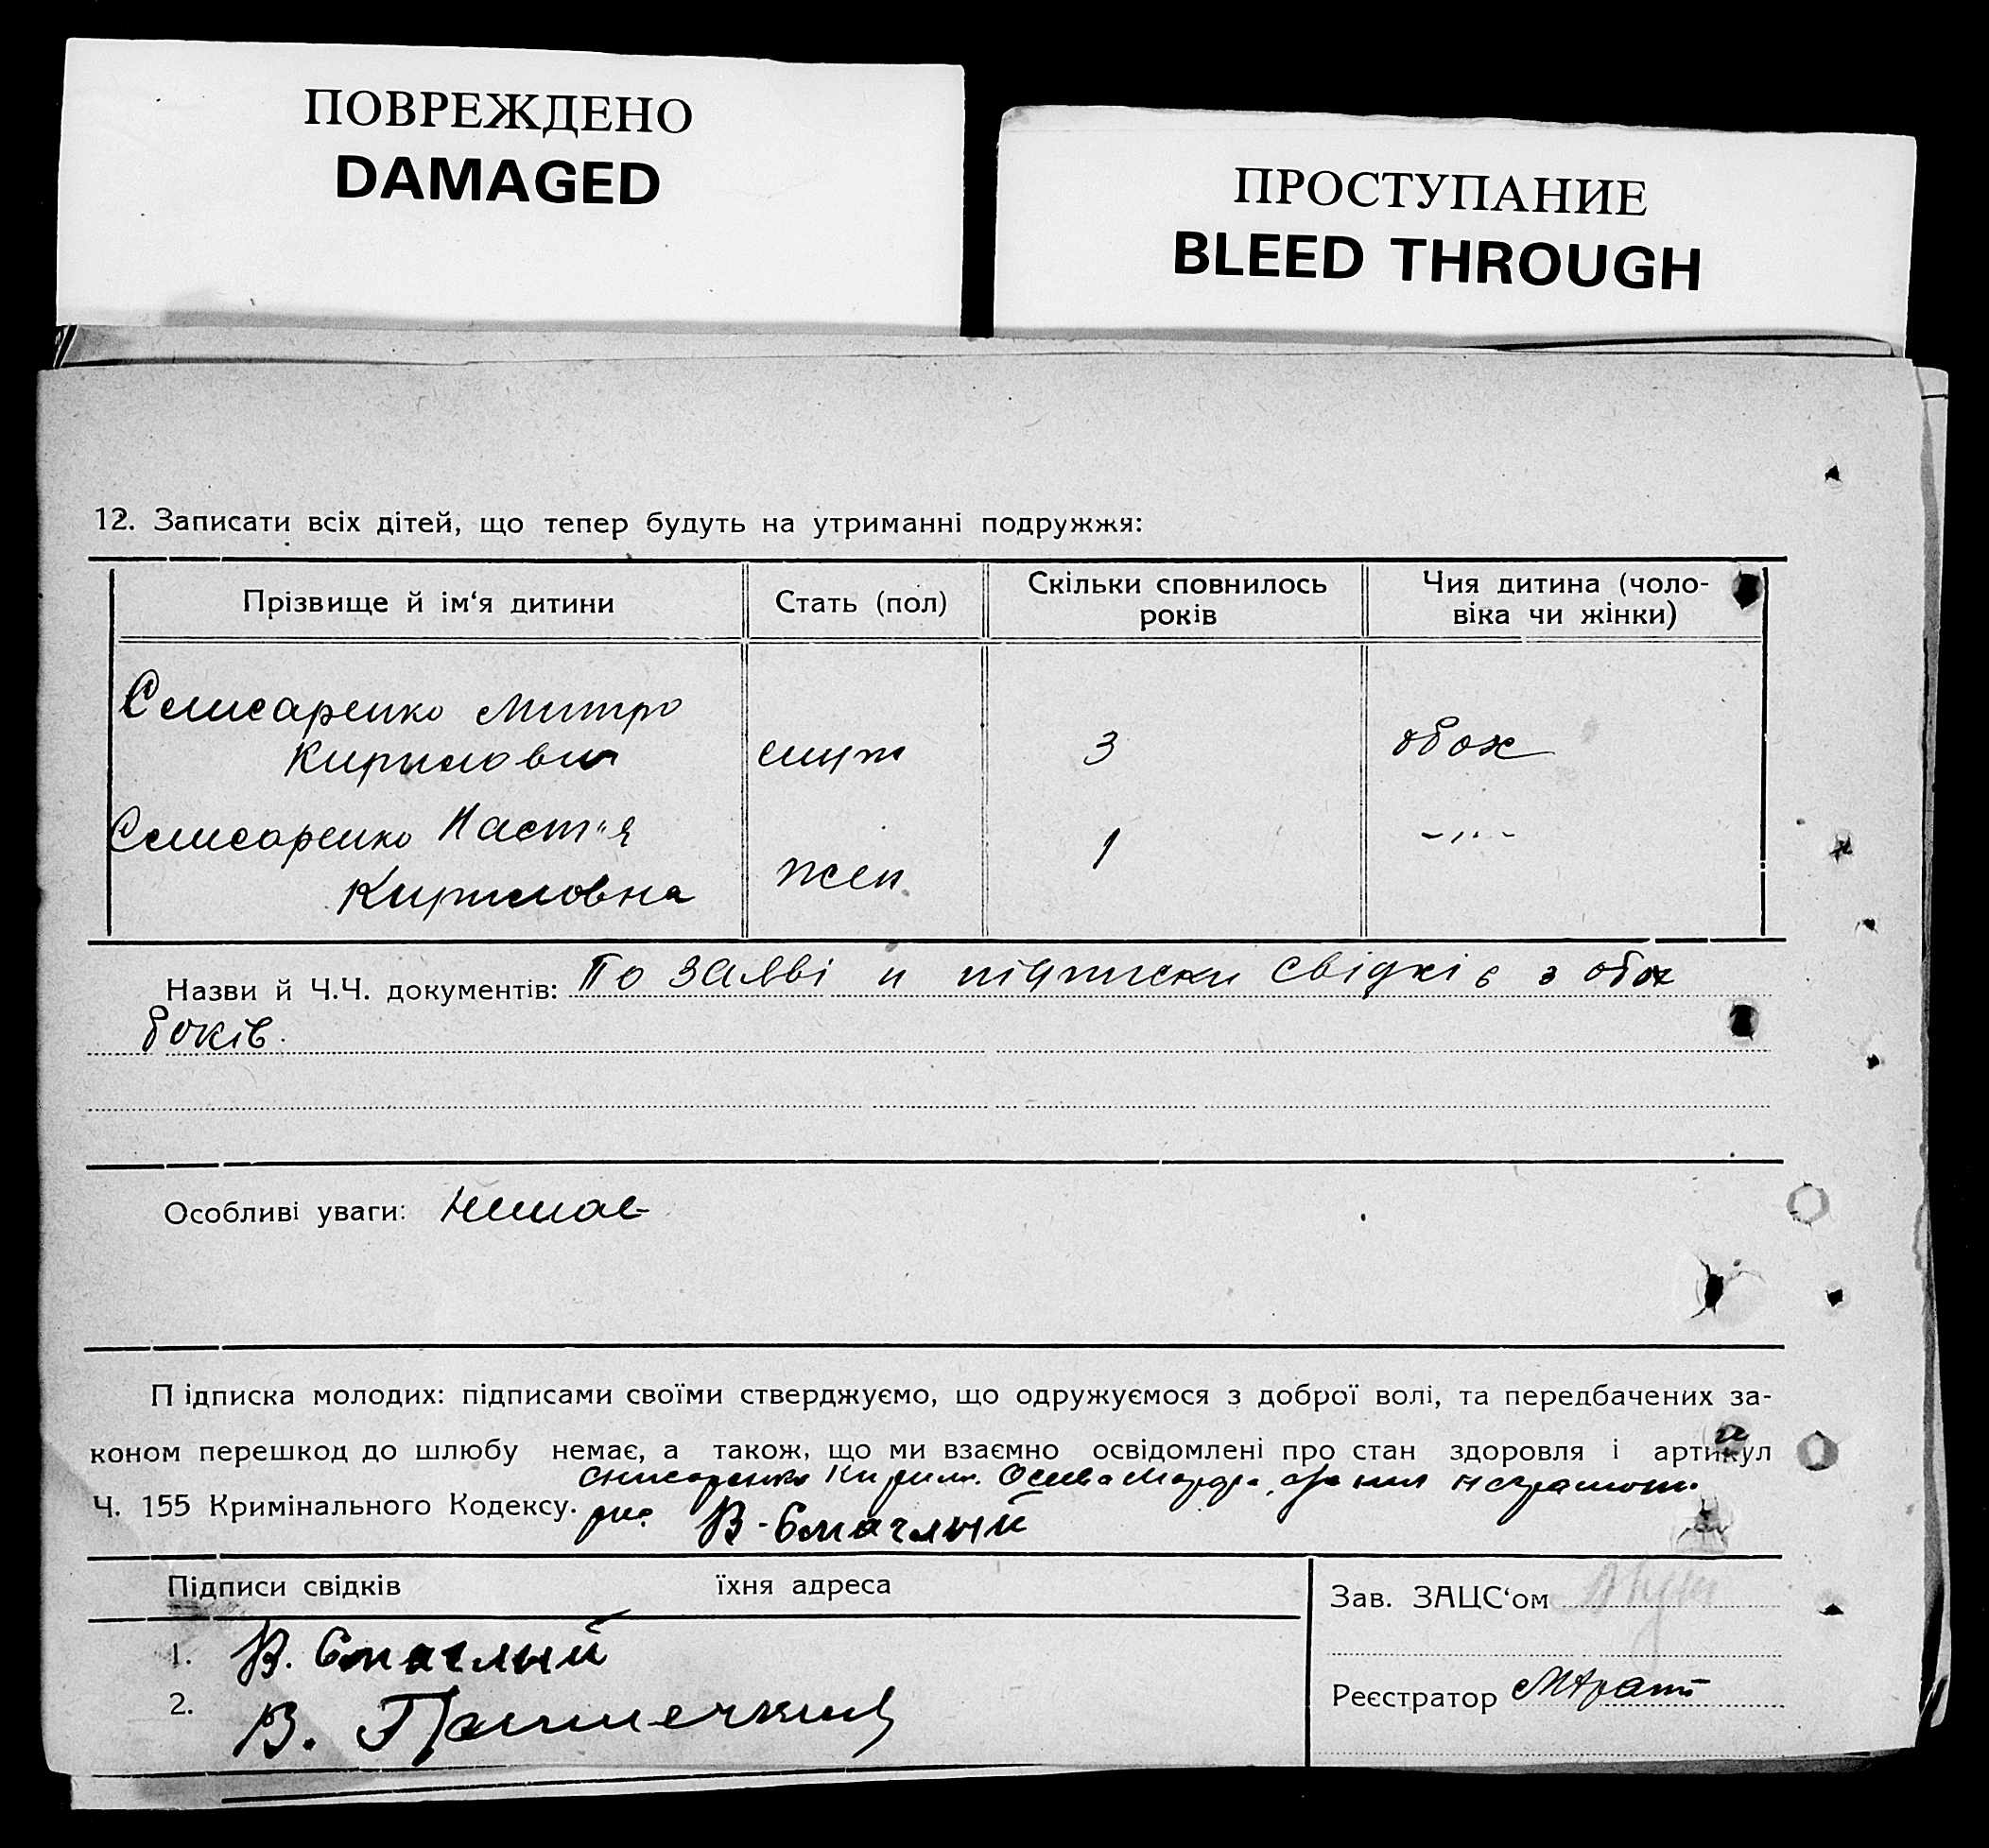 ПОВРЕЖДЕНО
DAMAGED
ПРОСТУПАНИЕ
BLEED THROUGH
12. Записати всіх дітей, що тепер будуть на утриманні подружжя:
Прізвище й ім‘я дитини
Стать (пол)
Скільки сповнилось
років
Чия дитина (чоло-
віка чи жінки)
Єлисаренко Митро
Кирилович
муж
3
обох
Єлисаренко Наст"я
Кириловна
жен
1
-"-
Назви й Ч.Ч. документів: По заяві и підписки свідків з обох
боків.
Особливі уваги: Немає
Підписка молодих: підписами своїми стверджуємо, що одружуємося з доброї волі, та передбачених за-
коном перешкод до шлюбу немає, а також, що ми взаємно освідомлені про стан здоровля і артикул
Ч. 155 Кримінального Кодексу.
Підписи свідків
їхня адреса
Зав. ЗАЦС‘ом
1. В.
2. В.
Реєстратор